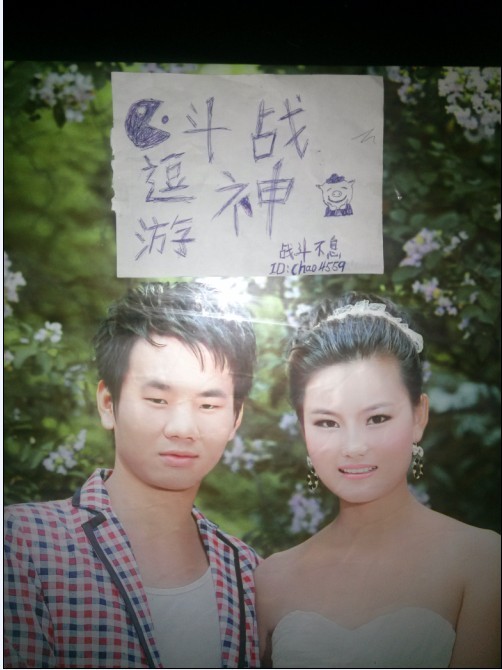 斗战神
逗游
战斗不息
ID:chao4559